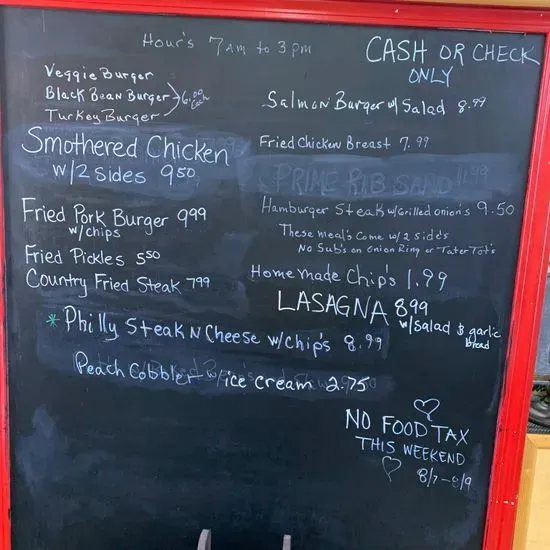 Hour's 7am to 3pm
CASH OR CHECK
ONLY
Veggie Burger
Black Bean Burger
Turkey Burger
6.00
Each
Salmon Burger w/ Salad 8.99
Smothered Chicken
w/2 sides 9.50
Fried Chicken Breast 7.99
PRIME RIB SAND 11.99
Fried Pork Burger 9.99
w/chips
Hamburger Steak w/Grilled onion's 9.50
These meal's Come w/2 side's
No Sub's on Onion Ring or Tater Tot's
Fried Pickles 5.50
Country Fried Steak 7.99
Homemade Chip's 1.99
LASAGNA 8.99
w/Salad & garlic
bread
*Philly Steak N Cheese w/chip's 8.99
Peach Cobbler w/ice cream 2.75
NO FOOD TAX
THIS WEEKEND
8/7-8/9